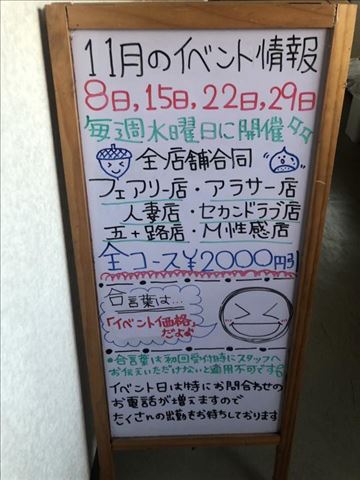 11月のイベント情報
8日,15日,22日,29日
毎週水曜日に開催
全店舗合同
フェアリー店・アラサー店
人妻店・セカンドラブ店
五十路店・M性感店
全コース¥2000円引
合言葉は…
「イベント価格」
だよ♪
*合言葉は初回受付時にスタッフへ
お伝えいただけないと適用不可です
イベント日は特にお問合わせの
お電話が増えますので
たくさんの出勤をお待ちしております